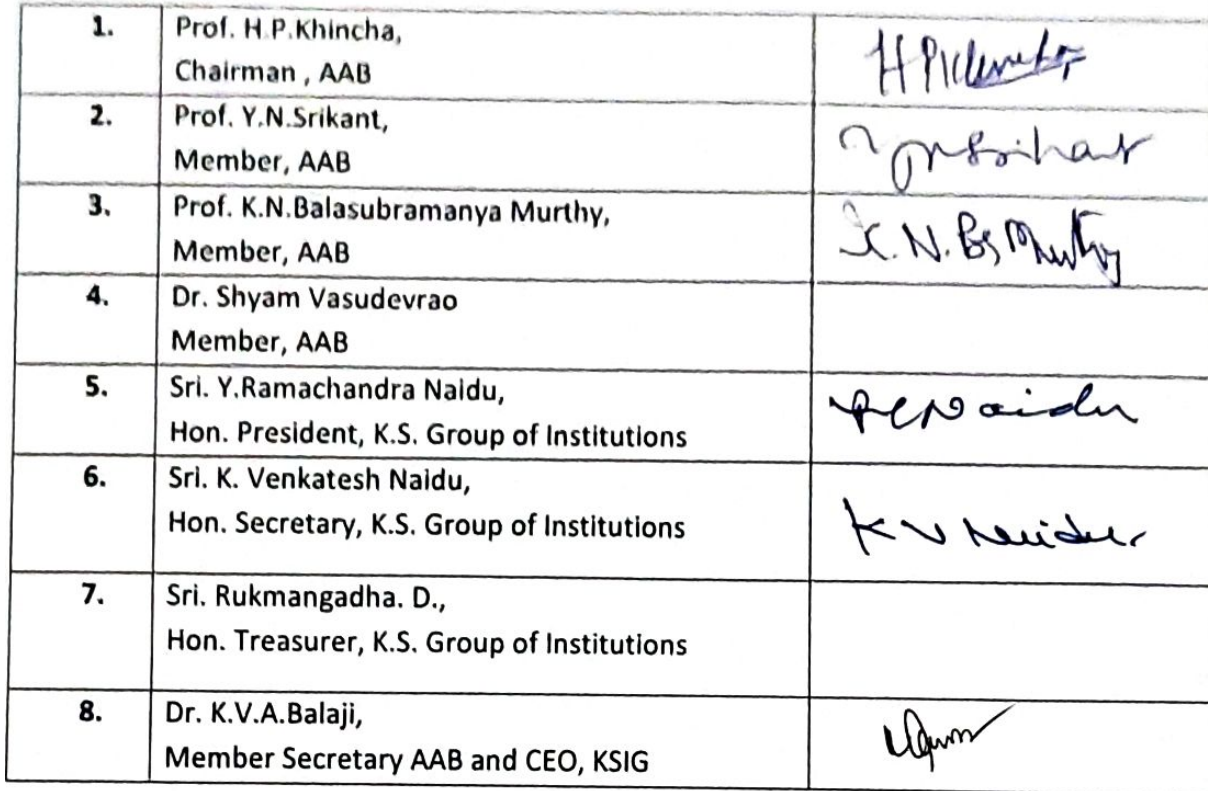 1. Prof. H.P.Khincha,
Chairman , AAB
2. Prof. Y.N.Srikant,
Member, AAB
3. Prof. K.N.Balasubramanya Murthy,
Member, AAB
K.N.BS Murthy
4. Dr. Shyam Vasudevrao
Member, AAB
5. Sri. Y.Ramachandra Naidu,
Hon. President, K.S. Group of Institutions
6. Sri. K. Venkatesh Naidu,
Hon. Secretary, K.S. Group of Institutions
K V Naidu
7. Sri. Rukmangadha. D.,
Hon. Treasurer, K.S. Group of Institutions
8. Dr. K.V.A.Balaji,
Member Secretary AAB and CEO, KSIG